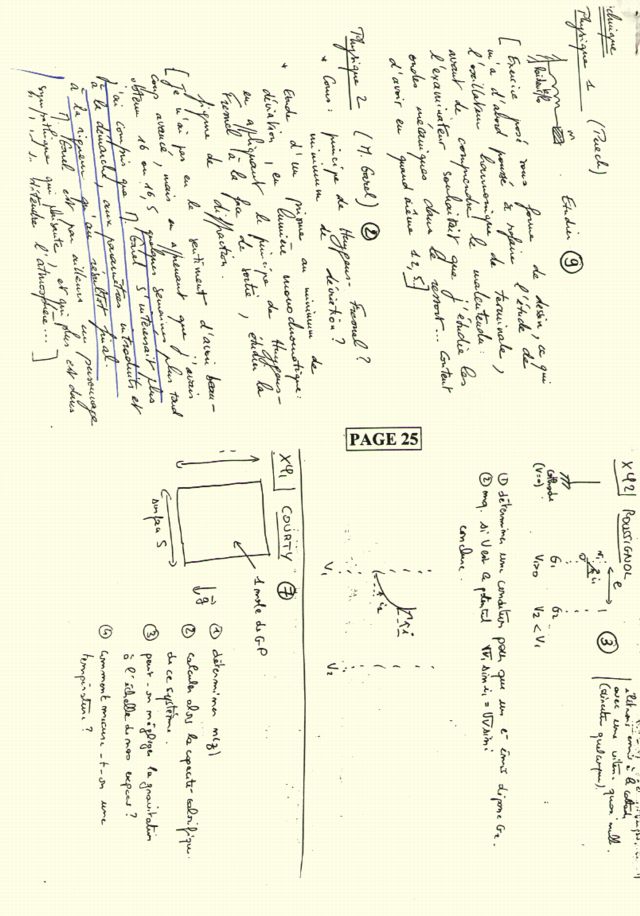 Physique 1 (Puech)
Endin ⑨
m
[ Exercice posé sous forme de dessin, ce qui
m'a d'abord poussé à refaire l'étude de
l'oscillateur harmonique de terminale,
avant de comprendre le malentendu :
l'examinateur souhaitait que j'étudie les
ondes mécaniques dans le ressort... Content
d'avoir eu quand même 12,5. ]
Physique 2 (M. Garel) ②
* Cours : principe de Huygens-Fresnel ?
minimum de déviation ?
* Etude d'un prisme au minimum de
déviation, en lumière monochromatique :
en appliquant le principe de Huygens-
Fresnel à la face de sortie, étudier la
figure de diffraction.
[ Je n'ai pas eu le sentiment d'avoir beau-
coup avancé, mais en apprenant que j'avais
obtenu 16 ou 16,5 quelques semaines plus tard
j'ai compris que M. Garel s'intéressait plus
à la démarche, aux paramètres introduits et
à la rigueur qu'au résultat final.
M. Garel est par ailleurs un personnage
sympathique qui plaisante, et qui plus est dans
détendre l'atmosphère... ]
PAGE 25
X42 ROUSSIGNOL ③
avec une vitesse quasi nulle.
(direction quelconque)
cathode
(V=0)
G1
V1>0
G2
V2 < V1
e
① déterminer une condition pour que un e- émis dépasse G2.
② mq. si V est le potentiel √V1 sin i1 = √V sin i
conclure.
V1
V2
X41 COURTY ⑦
1 mole de GP
surface S
g
① déterminer n(z)
② calculer alors la capacité calorifique
de ce système.
③ peut-on négliger la gravitation
à l'échelle de nos expces ?
④ comment mesure-t-on une
température ?